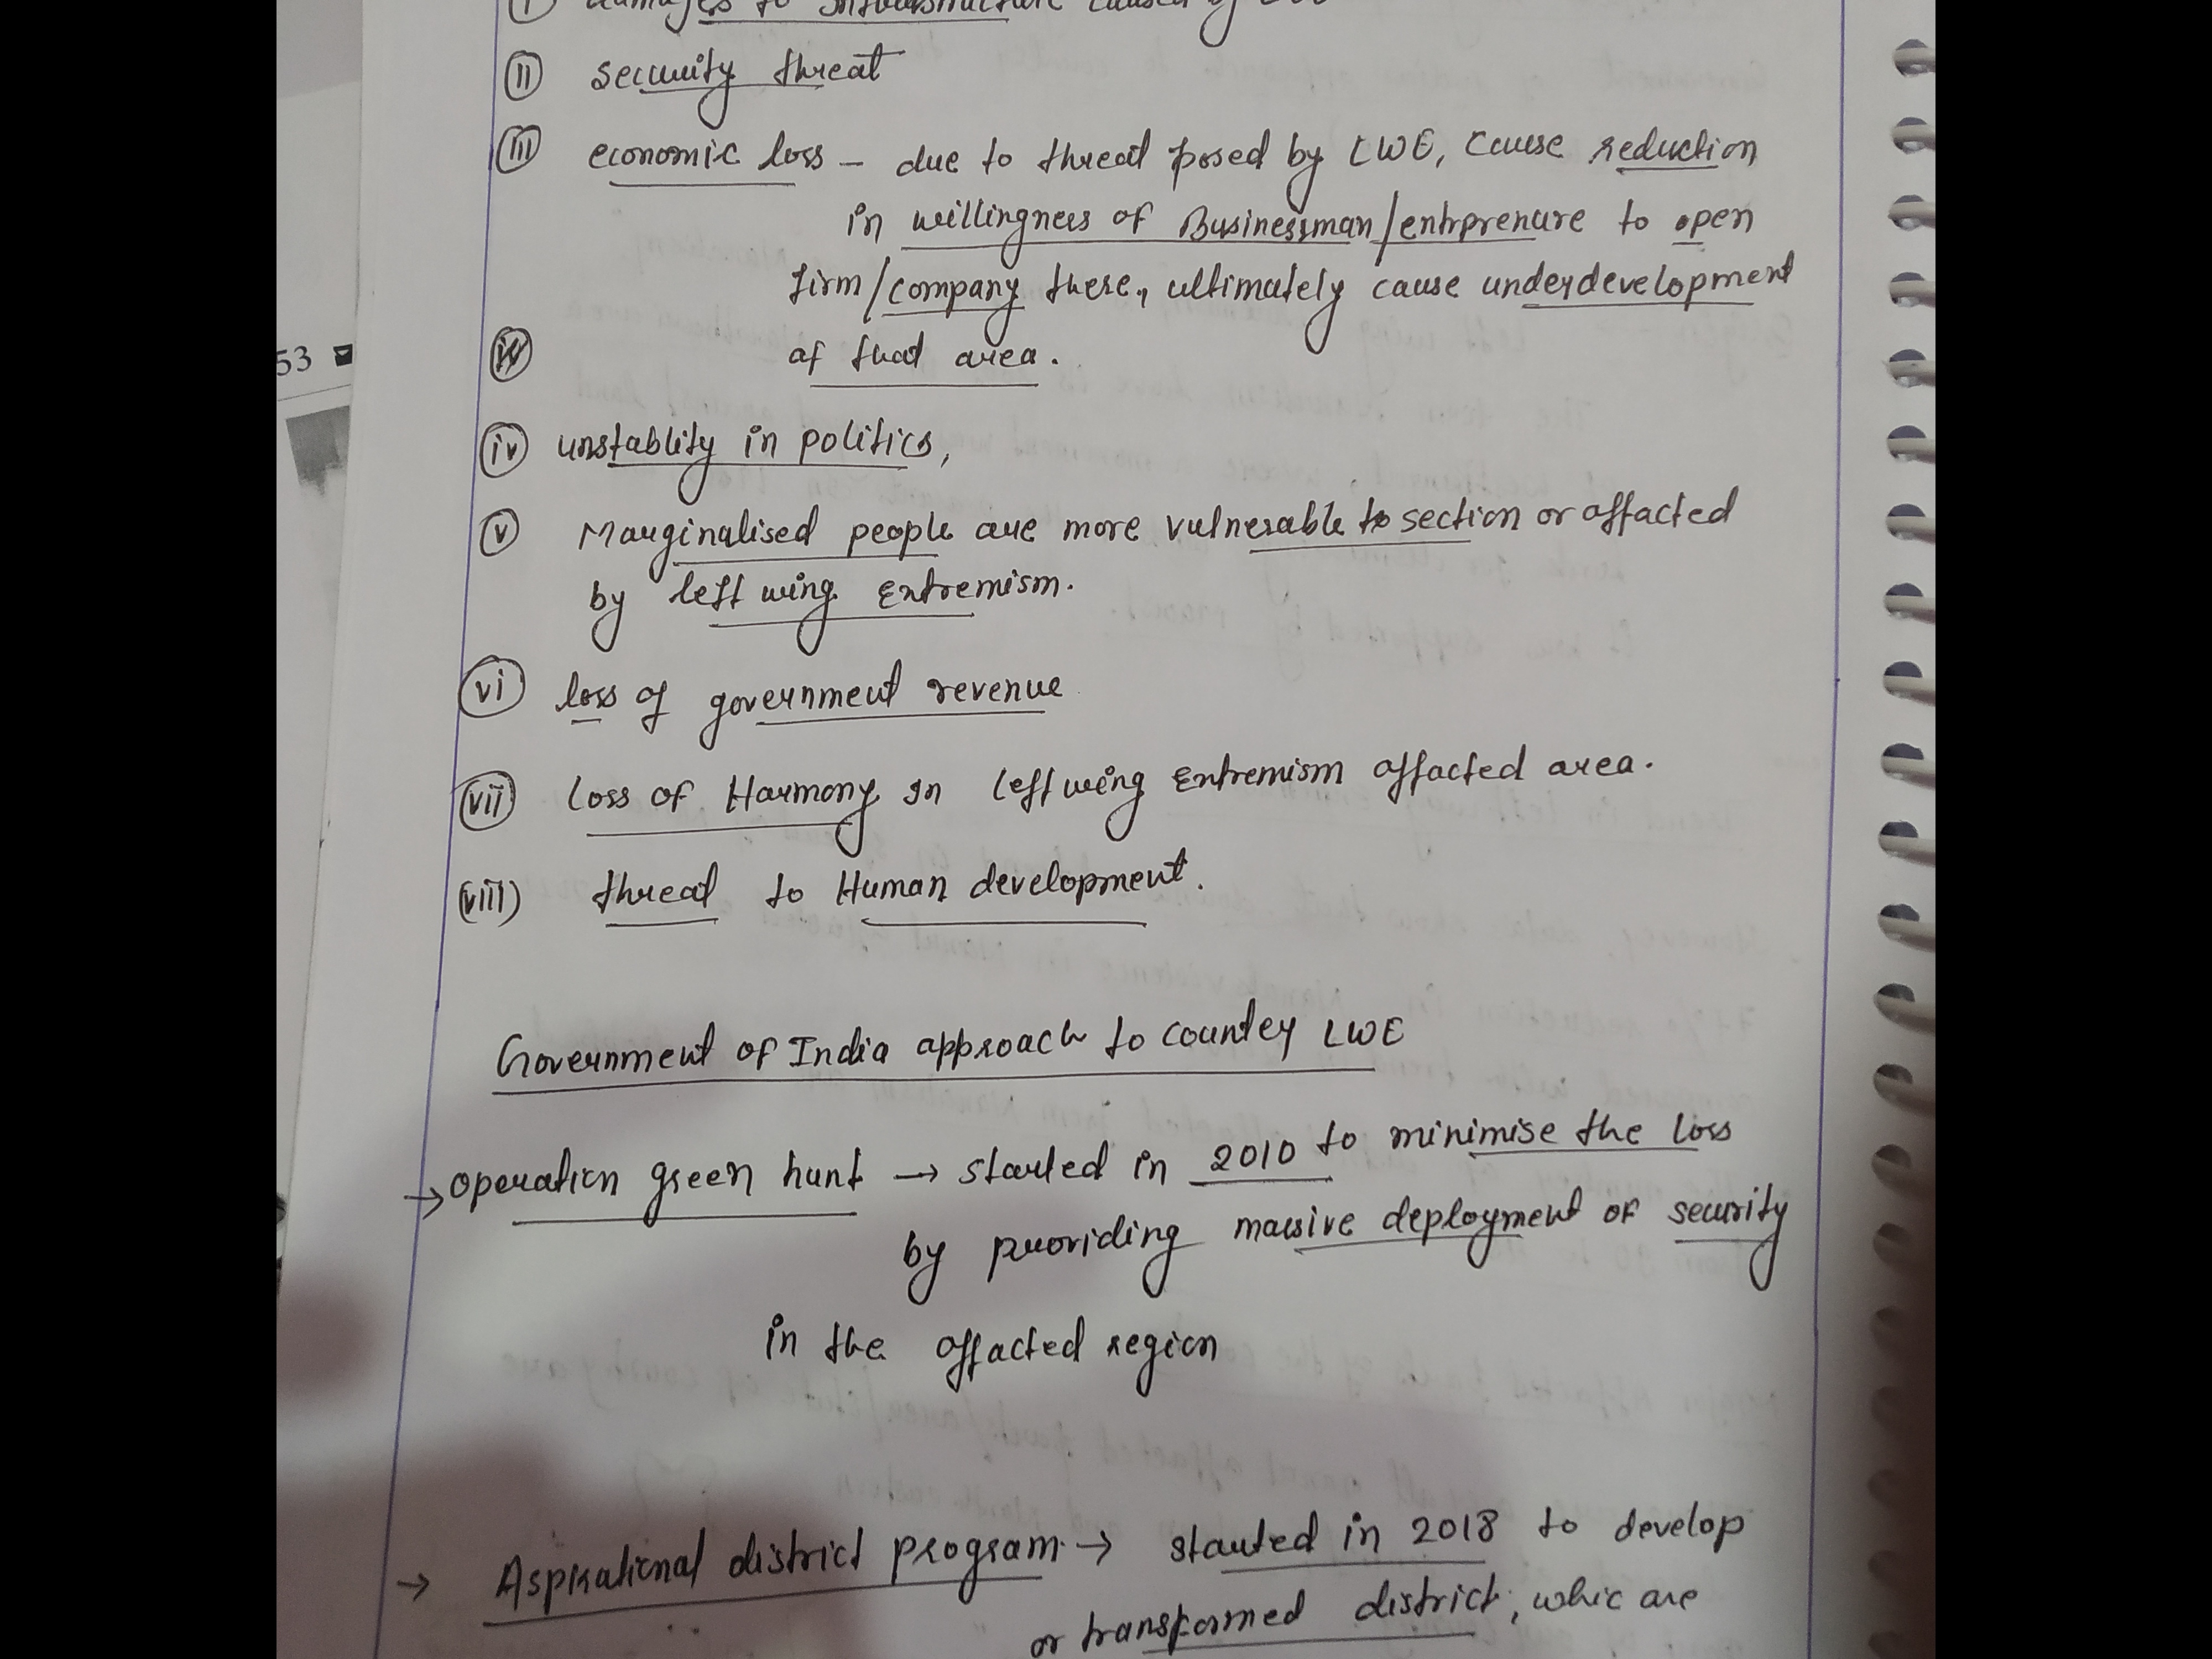 (i) damages to Infrastructure caused by LWE
(ii) security threat
(iii) economic loss – due to threat posed by LWE, cause reduction
in willingness of Businessman/entrprenure to open
firm/company there, ultimately cause underdevelopment
of that area.
(iv) unstablity in politics,
(v) Marginalised people are more vulnerable to section or affacted
by left wing Extremism.
(vi) loss of government revenue
(vii) Loss of Harmony In left wing Extremism affacted area.
(viii) threat to Human development.
Government of India approach to countey LWE
→ operation green hunt → started in 2010 to minimise the loss
by providing massive deployment of security
in the affacted region
→ Aspirational district program → started in 2018 to develop
or transformed district, whic are
53